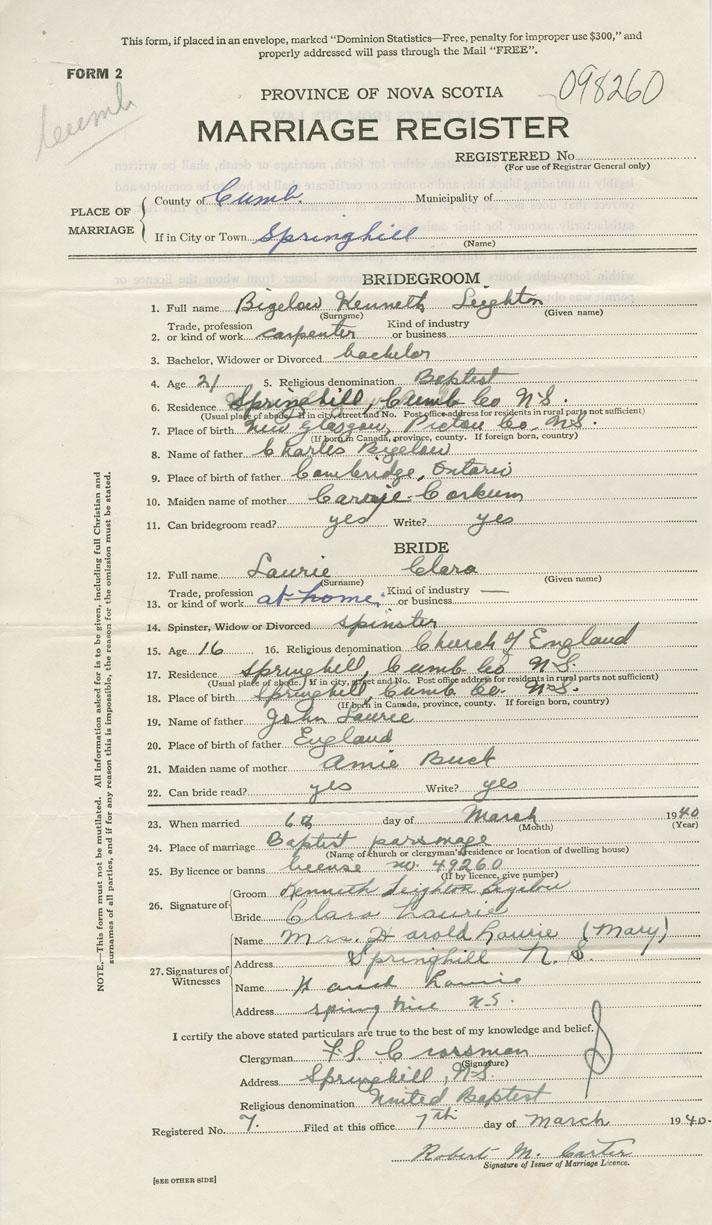 This form, if placed in an envelope, marked "Dominion Statistics—Free, penalty for improper use $300," and
properly addressed will pass through the Mail "FREE".
FORM 2
Cumb
098260
PROVINCE OF NOVA SCOTIA
MARRIAGE REGISTER
REGISTERED No.
(For use of Registrar General only)
PLACE OF MARRIAGE
County of Cumb. Municipality of
If in City or Town Springhill
(Name)
BRIDEGROOM
1. Full name Bigelow Kenneth Leighton
(Surname) (Given name)
2. Trade, profession or kind of work carpenter Kind of industry or business
3. Bachelor, Widower or Divorced bachelor
4. Age 21 5. Religious denomination Baptist
6. Residence Springhill, Cumb Co N.S.
(Usual place of abode. If in city, street and No. Post office address for residents in rural parts not sufficient)
7. Place of birth New Glasgow, Pictou Co. N.S.
(If born in Canada, province, county. If foreign born, country)
8. Name of father Charles Bigelow
9. Place of birth of father Cambridge, Ontario
10. Maiden name of mother Carrie Corkum
11. Can bridegroom read? yes Write? yes
BRIDE
12. Full name Laurie Clara
(Surname) (Given name)
13. Trade, profession or kind of work at home. Kind of industry or business —
14. Spinster, Widow or Divorced spinster
15. Age 16 16. Religious denomination Church of England
17. Residence Springhill, Cumb Co. N.S.
(Usual place of abode. If in city, street and No. Post office address for residents in rural parts not sufficient)
18. Place of birth Springhill, Cumb Co. N.S.
(If born in Canada, province, county. If foreign born, country)
19. Name of father John Laurie
20. Place of birth of father England
21. Maiden name of mother Amie Buck
22. Can bride read? yes Write? yes
23. When married 6th day of March 1940
(Month) (Year)
24. Place of marriage Baptist parsonage
(Name of church or clergyman's residence or location of dwelling house)
25. By licence or banns license no. 49260
(If by licence, give number)
26. Signature of
Groom Kenneth Leighton Bigelow
Bride Clara Laurie
27. Signatures of Witnesses
Name Mrs. Harold Laurie (Mary)
Address Springhill N.S.
Name Harold Laurie
Address Spring hill N.S.
I certify the above stated particulars are true to the best of my knowledge and belief.
Clergyman F.S. Crossman
(Signature)
Address Springhill, N.S.
Religious denomination United Baptist
Registered No. 7. Filed at this office 7th day of March 1940.
Robert M. Carter
Signature of Issuer of Marriage Licence.
[SEE OTHER SIDE]
NOTE.—This form must not be mutilated. All information asked for is to be given, including full Christian and
surnames of all parties, and if for any reason this is impossible, the reason for the omission must be stated.